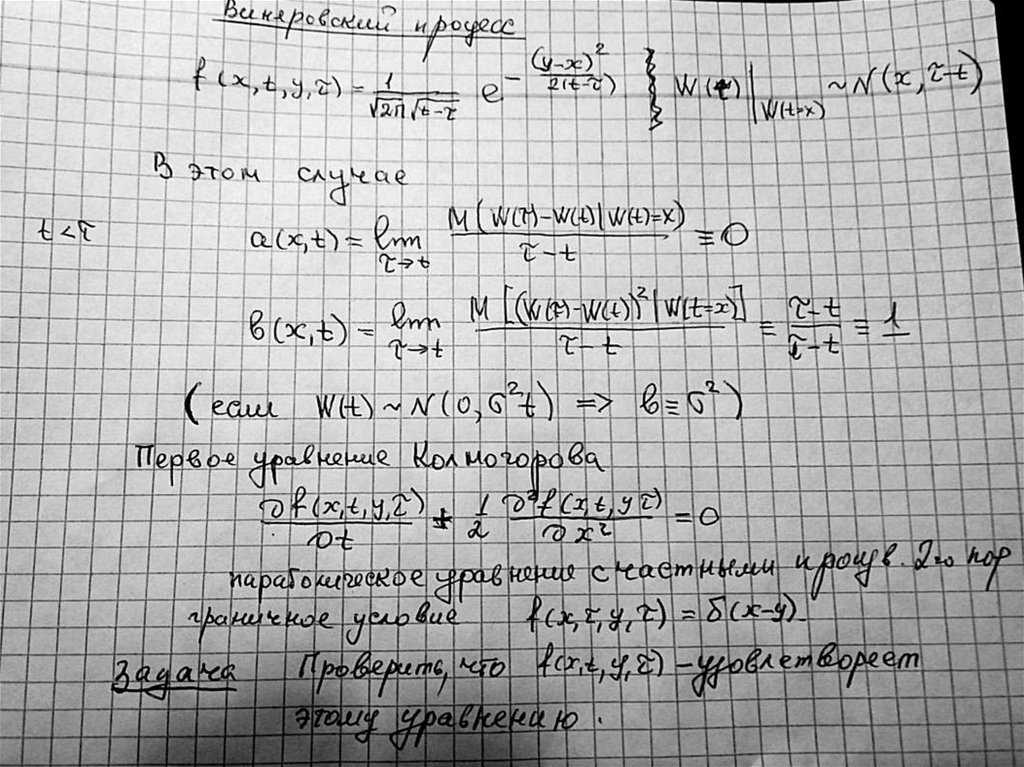 Винеровский процесс
f(x,t,y,τ) = 1/(√2π √t-τ) e^(-(y-x)²/(2(t-τ))) } W(τ)|W(t=x) ~ N(x, τ-t)
В этом случае
t<τ a(x,t) = lim τ→t M(W(τ)-W(t)|W(t)=x)/(τ-t) ≡ 0
b(x,t) = lim τ→t M[(W(τ)-W(t))²|W(t=x)]/(τ-t) ≡ (τ-t)/(τ-t) ≡ 1
(если W(t) ~ N(0,σ²t) => b≡σ²)
Первое уравнение Колмогорова
∂f(x,t,y,τ)/∂t + 1/2 ∂²f(x,t,y τ)/∂x² = 0
параболическое уравнение с частными произв. 2го пор
граничное условие f(x,τ,y,τ) = δ(x-y)
Задача Проверить, что f(x,t,y,τ) - удовлетвореет
этому уравнению.